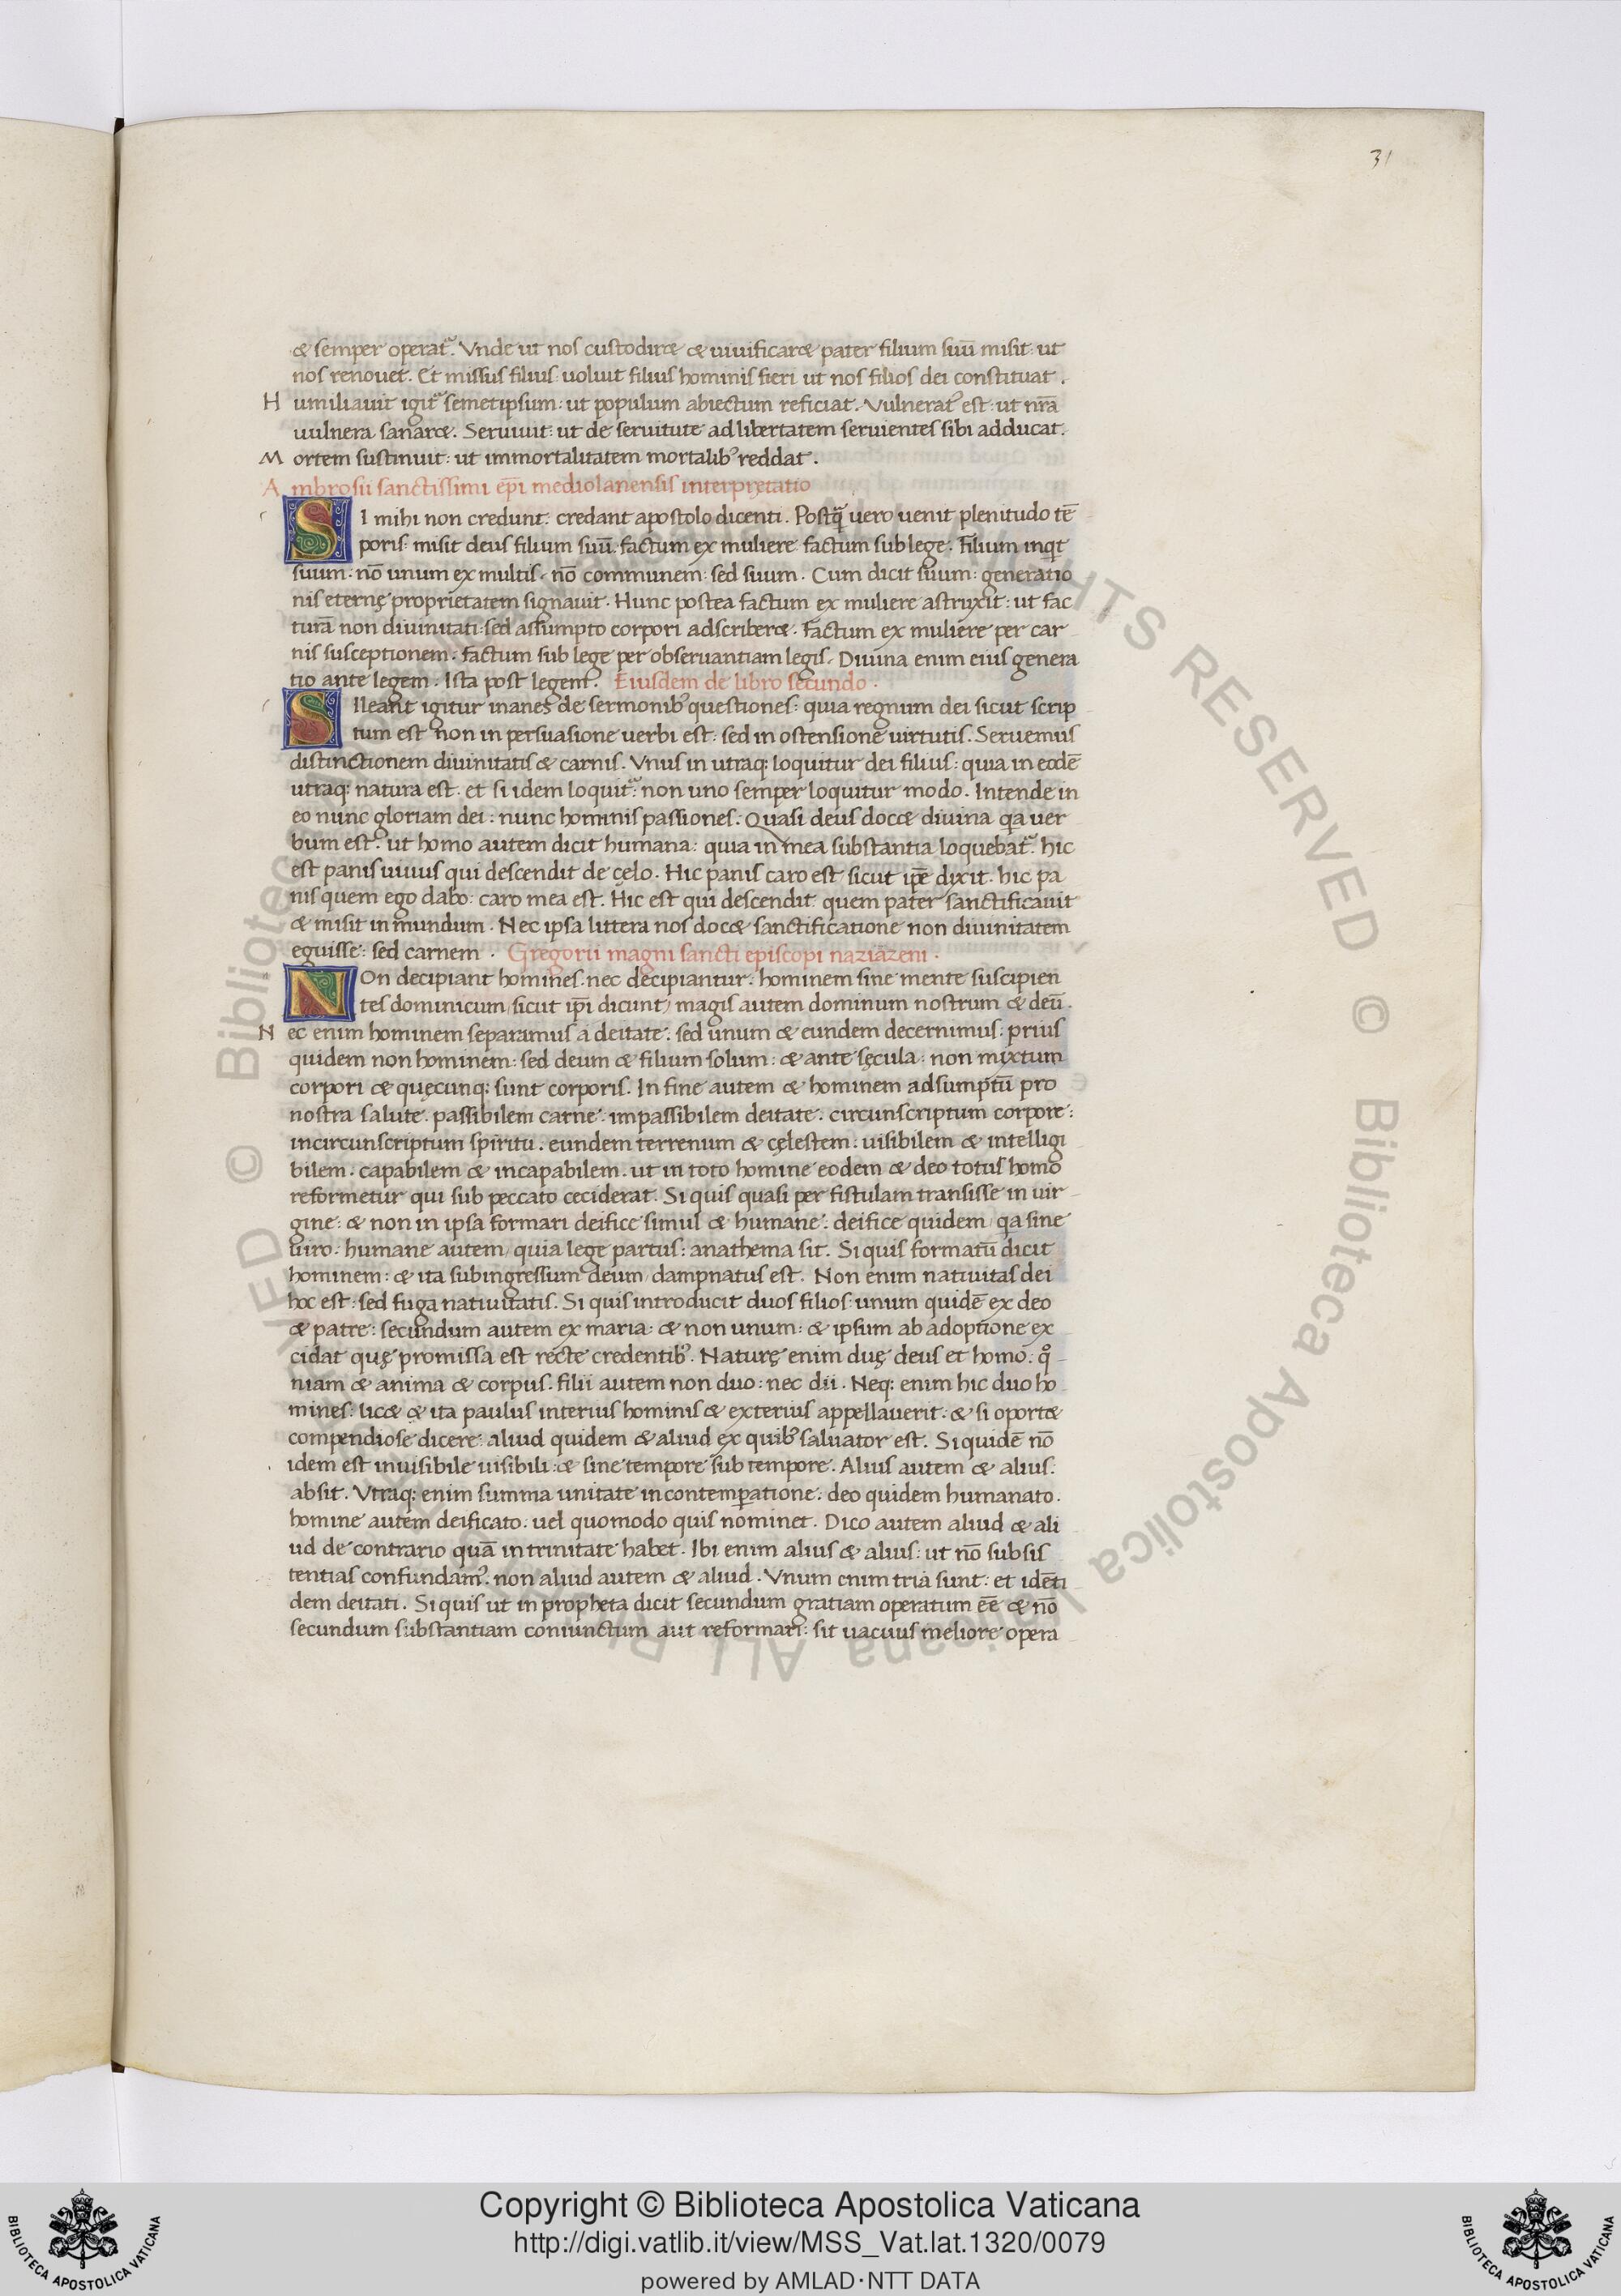 31
& semper operat᷑. Vnde ut nos custodir& & uiuificar& pater filium suū misit: ut
nos renouet. Et missus filius: uoluit filius hominis fieri ut nos filios dei constituat.
Humiliauit igit᷑ semetipsum: ut populum abiectum reficiat. Vulnerat᷑ est: ut nr̄a
uulnera sanar&. Seruiuit: ut de seruitute ad libertatem seruientes sibi adducat.
Mortem sustinuit: ut immortalitatem mortalibꝰ reddat.
Ambrosii sanctissimi ep̄i mediolanensis interprȩtatio
SI mihi non credunt: credant apostolo dicenti. Postq̄ uero uenit plenitudo tē
poris: misit deus filium suū: factum ex muliere: factum sub lege. Filium inqͥt
suum: nō unum ex multis: nō communem: sed suum. Cum dicit suum: generatio
nis eternę proprietatem signauit. Hunc postea factum ex muliere astruxit: ut fac
turā non diuinitati: sed assumpto corpori adscriber&. Factum ex muliere per car
nis susceptionem. factum sub lege per obseruantiam legis. Diuina enim eius genera
tio ante legem. Ista post legem. Eiusdem de libro secundo.
SIleant igitur inanes de sermonibꝰ questiones: quia regnum dei sicut scrip
tum est non in persuasione uerbi est: sed in ostensione uirtutis. Seruemus
distinctionem diuinitatis & carnis. Vnus in utraq; loquitur dei filius: quia in eodē
utraq; natura est. et si idem loquit᷑: non uno semper loquitur modo. Intende in
eo nunc gloriam dei: nunc hominis passiones. Quasi deus doc& diuina qͣa uer
bum est: ut homo autem dicit humana: quia in mea substantia loquebat᷑. hic
est panis uiuus qui descendit de cęlo. Hic panis caro est sicut ip̄e dixit. hic pa
nis quem ego dabo: caro mea est. Hic est qui descendit: quem pater sanctificauit
& misit in mundum. Nec ipsa littera nos doc& sanctificatione non diuinitatem
eguisse: sed carnem. Gregorii magni sancti episcopi naziāzeni.
NOn decipiant homines. nec decipiantur: hominem sine mente suscipien
tes dominicum/ sicut ip̄i dicunt/ magis autem dominum nostrum & deū.
Nec enim hominem separamus a deitate: sed unum & eundem decernimus: prius
quidem non hominem: sed deum & filium solum: & ante sęcula: non mixtum
corpori & quęcunq; sunt corporis. In fine autem & hominem adsumptū pro
nostra salute. passibilem carne. impassibilem deitate. circunscriptum corpore:
incircunscriptum spiritu. eundem terrenum & cęlestem: uisibilem & intelligi
bilem. capabilem & incapabilem. ut in toto homine eodem & deo totus homo
reformetur qui sub peccato ceciderat. Si quis quasi per fistulam transisse in uir
gine: & non in ipsa formari deifice simul & humane: deifice quidem/ qa sine
uiro: humane autem/ quia lege partus: anathema sit. Si quis formatū dicit
hominem: & ita subingressum deum/ dampnatus est. Non enim natiuitas dei
hoc est: sed fuga natiuitatis. Si quis introducit duos filios: unum quidē ex deo
& patre: secundum autem ex maria: & non unum: & ipsum ab adoptione ex
cidat quę promissa est recte credentibꝰ. Naturę enim duę deus et homo: qͦ
niam & anima & corpus. filii autem non duo: nec dii. Neq; enim hic duo ho
mines: lic& & ita paulus interius hominis & exterius appellauerit: & si oport&
compendiose dicere: aliud quidem & aliud ex quibꝰ saluator est. Si quidē nō
idem est inuisibile uisibili: & sine tempore sub tempore. Alius autem & alius:
absit. Vtraq; enim summa unitate in contemꝑatione: deo quidem humanato.
homine autem deificato. uel quomodo quis nominet. Dico autem aliud & ali
ud de contrario quā in trinitate habet. Ibi enim alius & alius: ut nō subsis
tentias confundamꝰ. non aliud autem & aliud. Vnum enim tria sunt: et idēti
dem deitati. Si quis ut in propheta dicit secundum gratiam operatum eē̄ & nō
secundum substantiam coniunctum aut reformari: sit uacuus meliore opera
Copyright © Biblioteca Apostolica Vaticana
http://digi.vatlib.it/view/MSS_Vat.lat.1320/0079
powered by AMLAD·NTT DATA
BIBLIOTECA APOSTOLICA VATICANA
BIBLIOTECA APOSTOLICA VATICANA